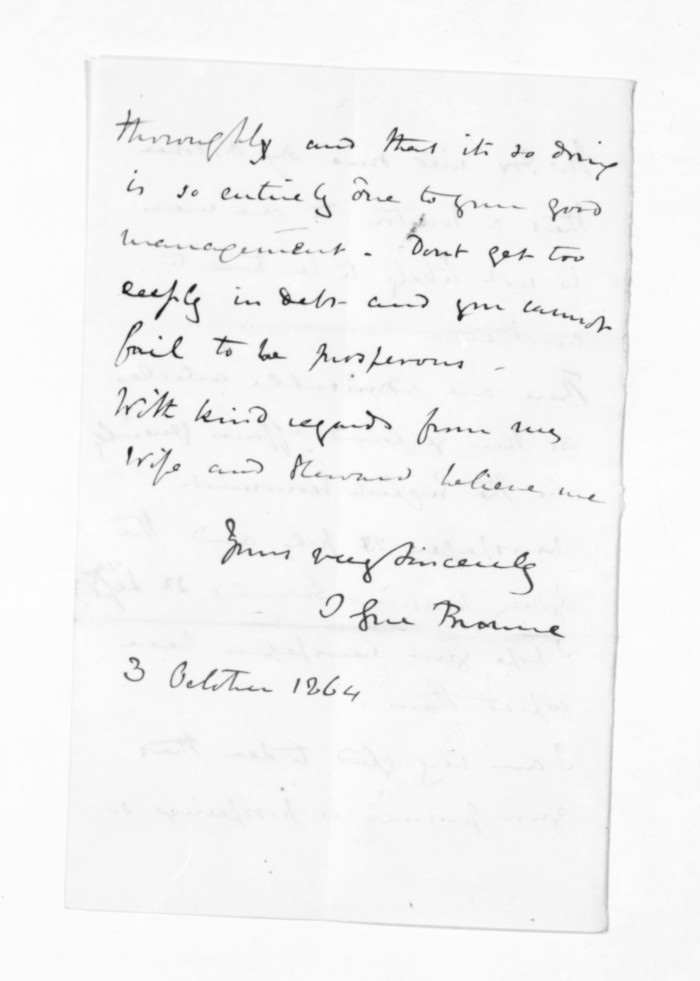 thoroughly and that its so doing
is so entirely due to your good
management. Dont get too
deeply in debt and you cannot
fail to be prosperous -
With kind regards from my
Wife and Howard believe me
Yours very Sincerely
T Gore Browne
3 October 1864